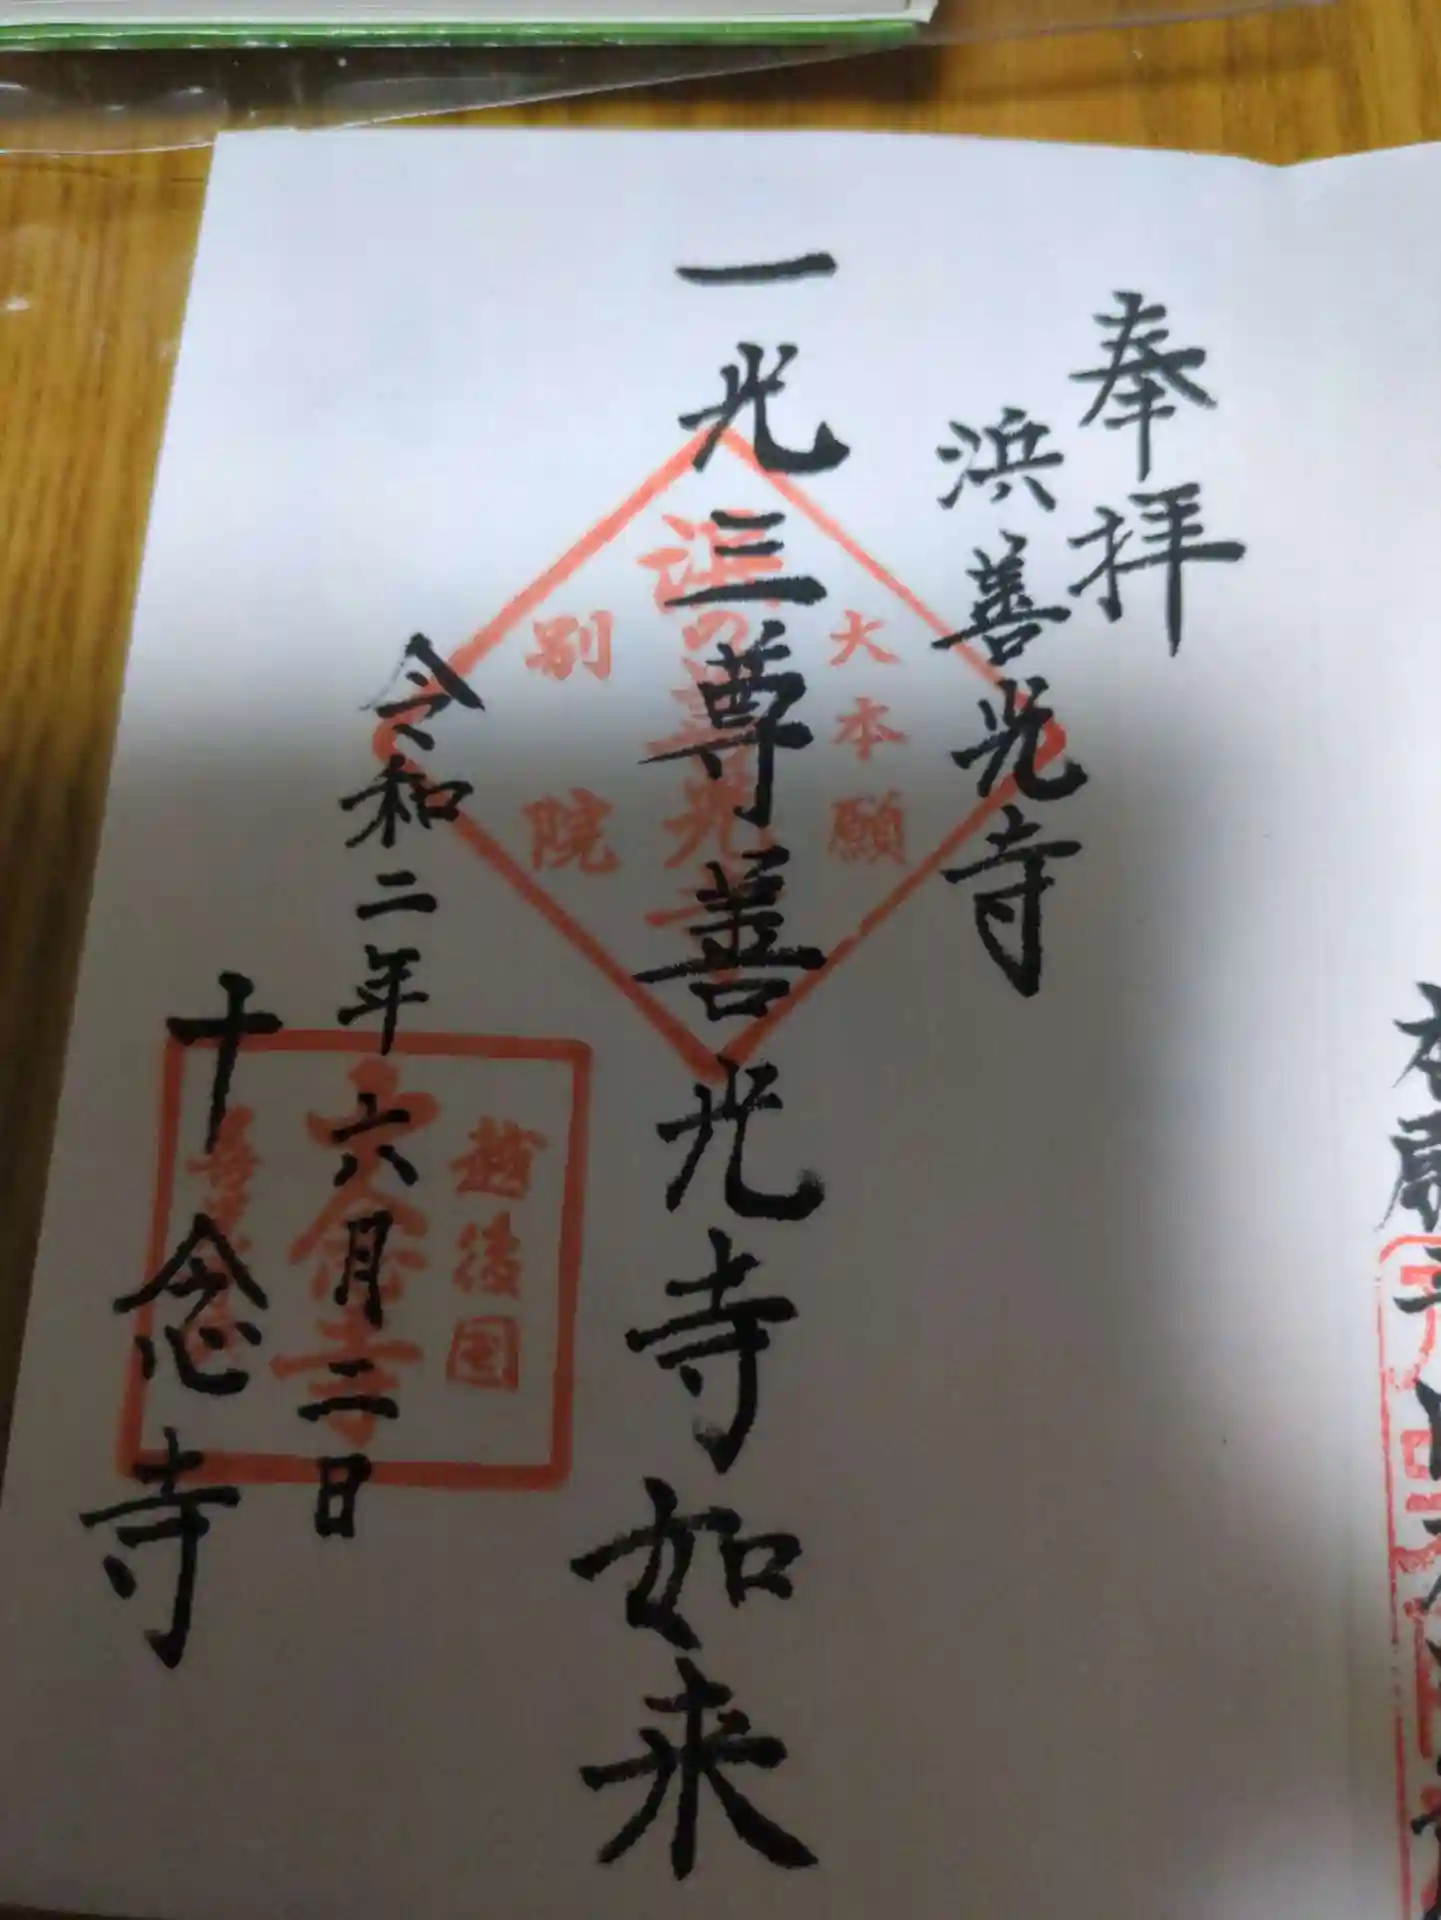 奉拝
浜善光寺
一光三尊善光寺如来
令和二年六月二日
十念寺
大本願
浜の善光寺
別院
越後国
十念寺